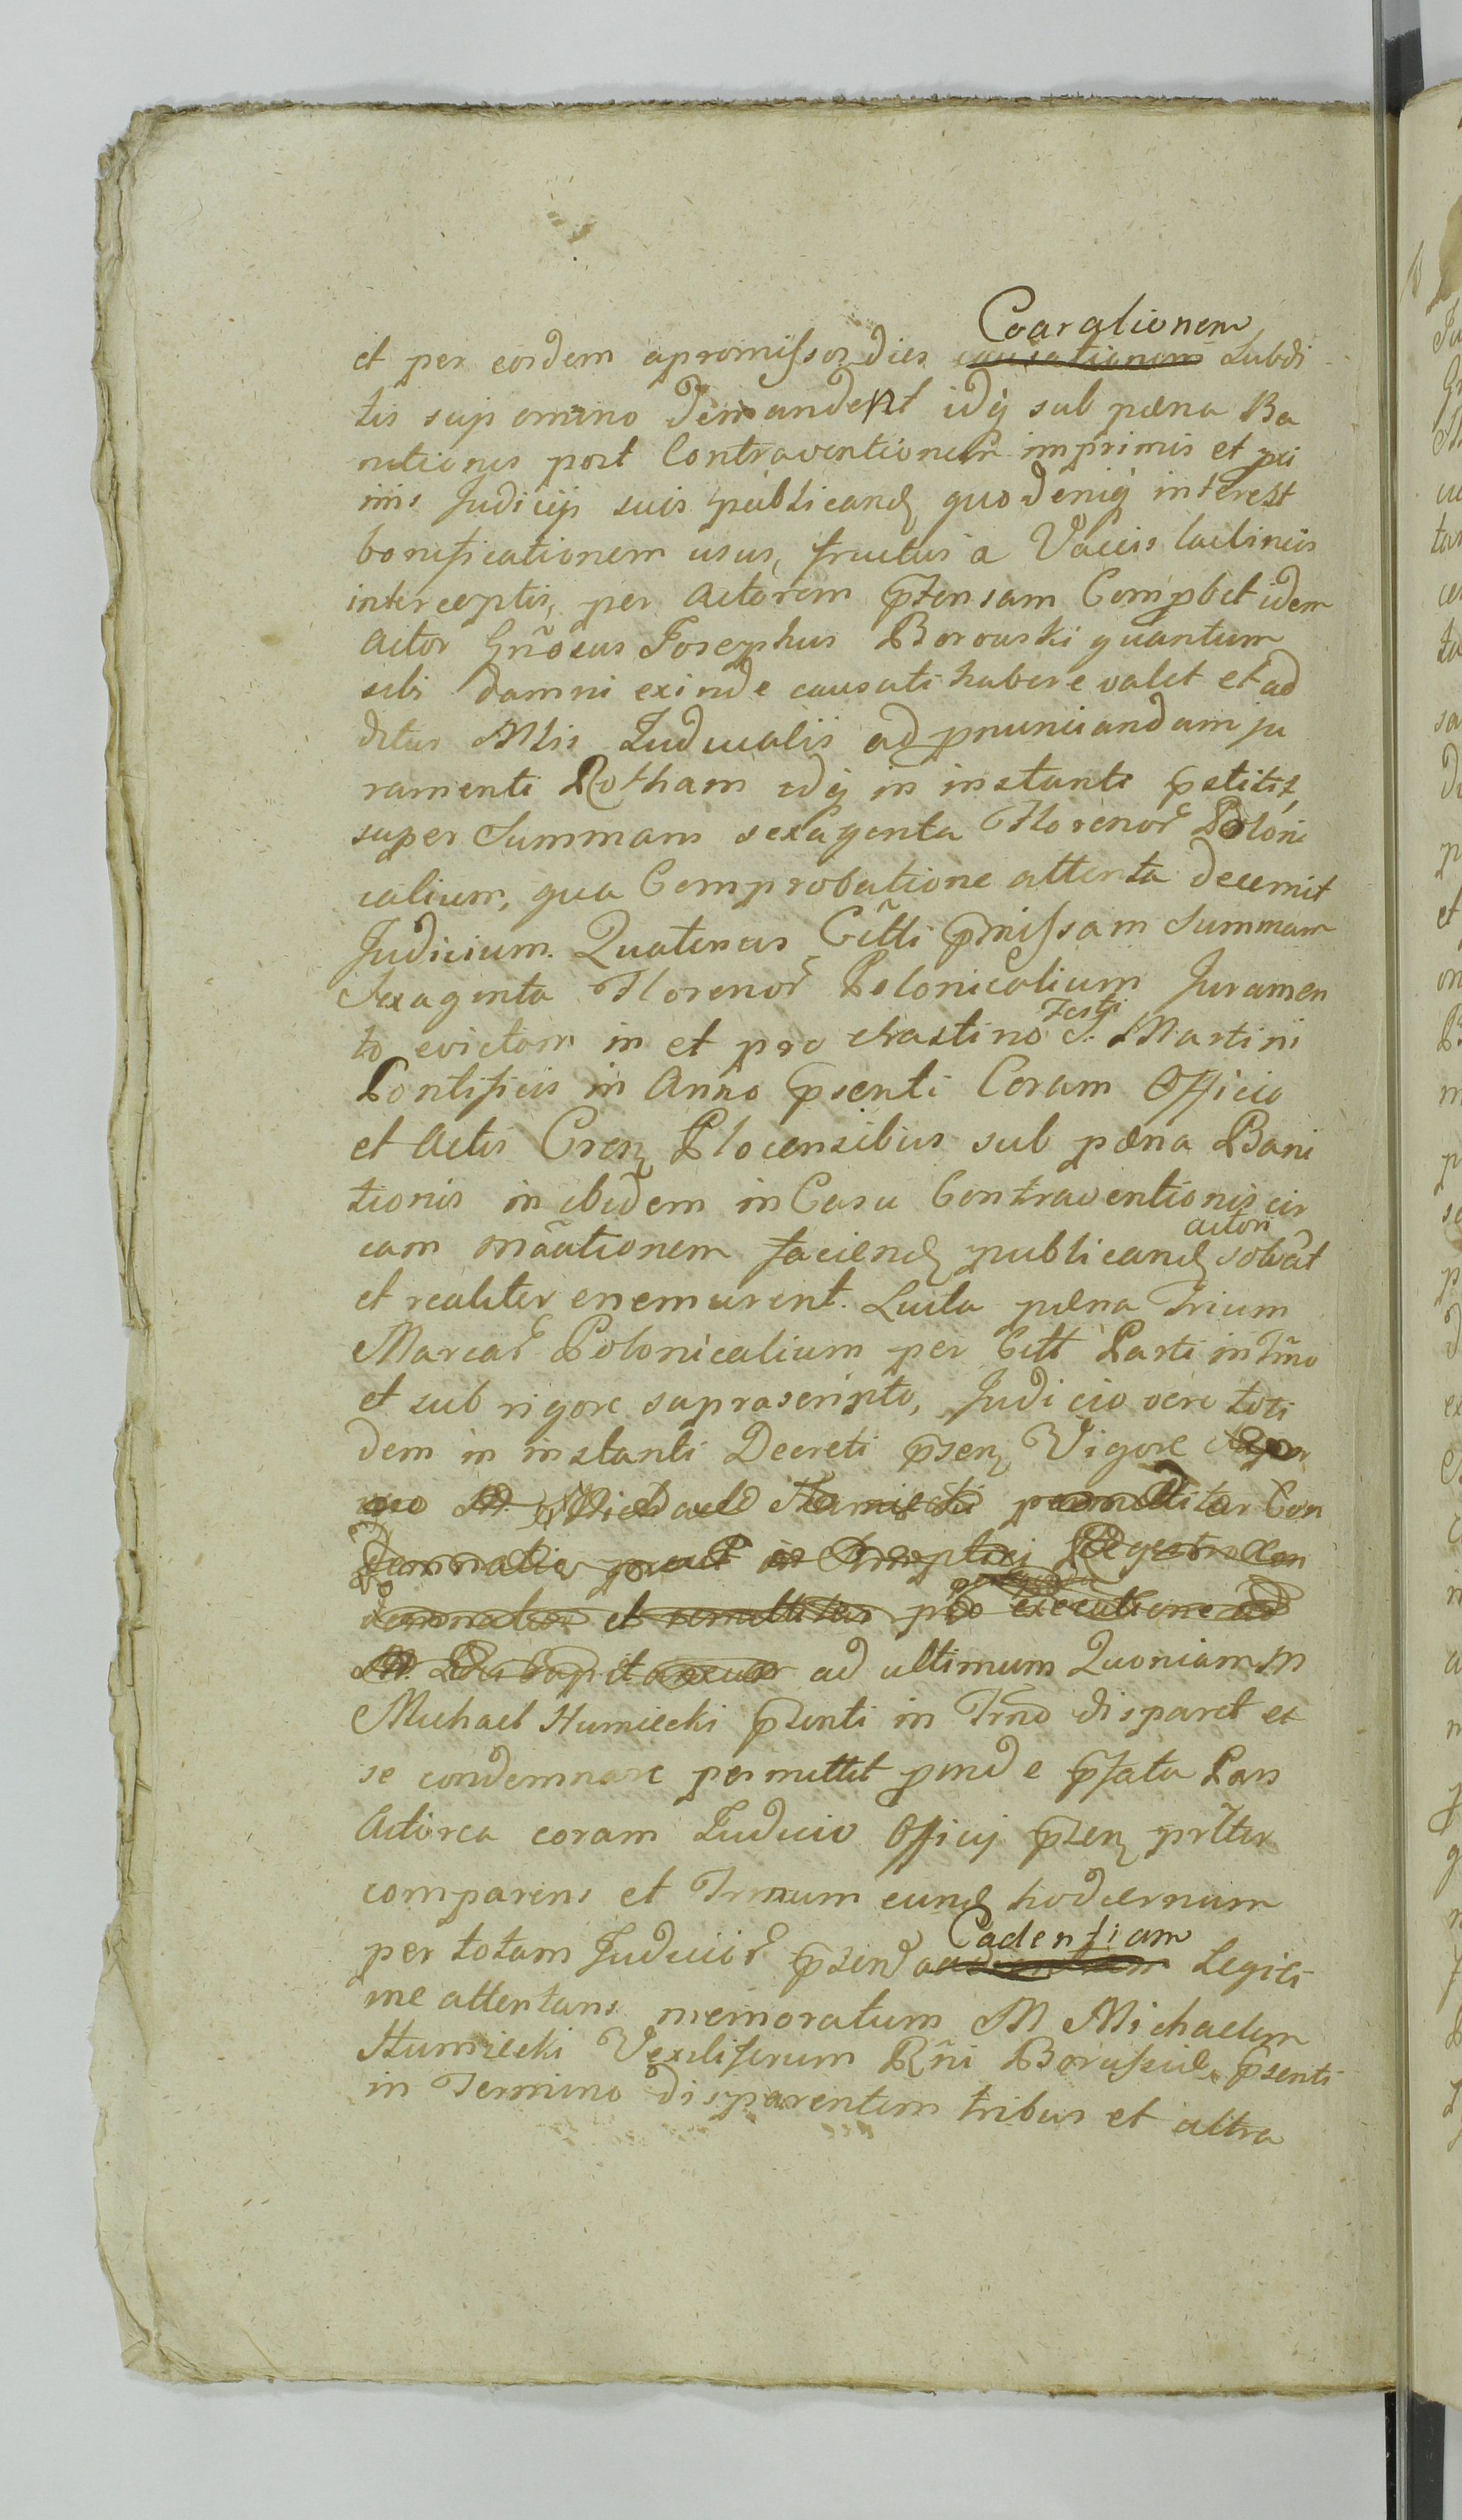 Coarationem
et per eosdem apromissos dies causationem Subdi
tis sup omnino demandent idq̨ sub pæna Ba
nitionis post Contraventionem imprimis et pri
mis Judicijs suis publicand quo deniq̨ interest
bonificationem usus, fructus a Vaccis lacticineis
interceptis, per Actorem p̃tensam Comp̱bet idem
Actor Gñosus Josephus Borowski quantum
sibi damni exinde causati habere valet et ad
ditur Mlis Judicialis ad p̱nunciandam ju
ramenti Rotham idq̨ in instanti p̱stitit,
super Summam sexaginta Florenor Poloni
calium, qua Comprobatione attenta decernit
Judicium. Quatenus Citti p̃missam Summam
Sexaginta Florenor Polonicalium Juramen
to evictam in et pro Crastino Festi S. Martini
Pontificis in Anno p̃senti Coram Officio
et Actis Cren Plocensibus sub pæna Bani
tionis in ibidem in Casu Contraventionis cir
cam mãationem faciend publicand actori solvãt
et realiter enemurent. Luita pæna trium
Marcar Polonicalium per Citt Parti in Tr̃mo
et sub rigore suprascripto, Judicio vero toti
dem in instanti Decreti p̃sen Vigore
quo M. Michaele Humiecki permittitur Con
demnatio prout in Regestro Con
demnatur et remittitur pro executione ad
M. Subcapitaneum ad ultimum Quoniam M
Michael Humiecki p̃senti in Trñō disparet et
se condemnare permittit p̱inde p̃fata Pars
Actorea coram Judicio Officij p̃sen pr̃lter
comparens et Trmnum eund hodiernum
per totam Judicior p̃send audientiam Cadentiam Legiti
me attentans memoratum M Michaelem
Humiecki Vexiliferum Rñi Borussiæ p̃senti
in Termino disparentem tribus et ultra